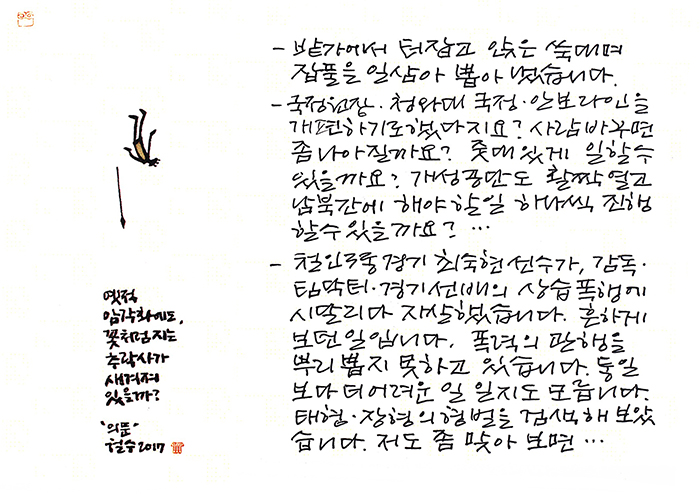 - 밭가에서 터잡고 앉은 쑥대며
잡풀을 일삼아 뽑아 냈습니다.
- 국정원장·청와대 국정·안보라인을
개편하기로했다지요? 사람바꾸면
좀나아질까요? 줏대있게 일할수
있을까요? 개성공단도 활짝열고
남북간에 해야할일 하나씩 진행
할수있을까요? …
- 철인3종경기 최숙현선수가, 감독·
팀닥터·경기선배의 상습폭행에
시달리다 자살했습니다. 흔하게
보던일입니다. 폭력의 관행을
뿌리뽑지 못하고 있습니다. 통일
보다 더어려운 일 일지도 모릅니다.
태형·장형의형벌을 검색해 보았
습니다. 저도 좀 맞아 보면 …
옛적
암각화에도,
꽃처럼지는
추락사가
새겨져
있을까?
"의문"
철수2017